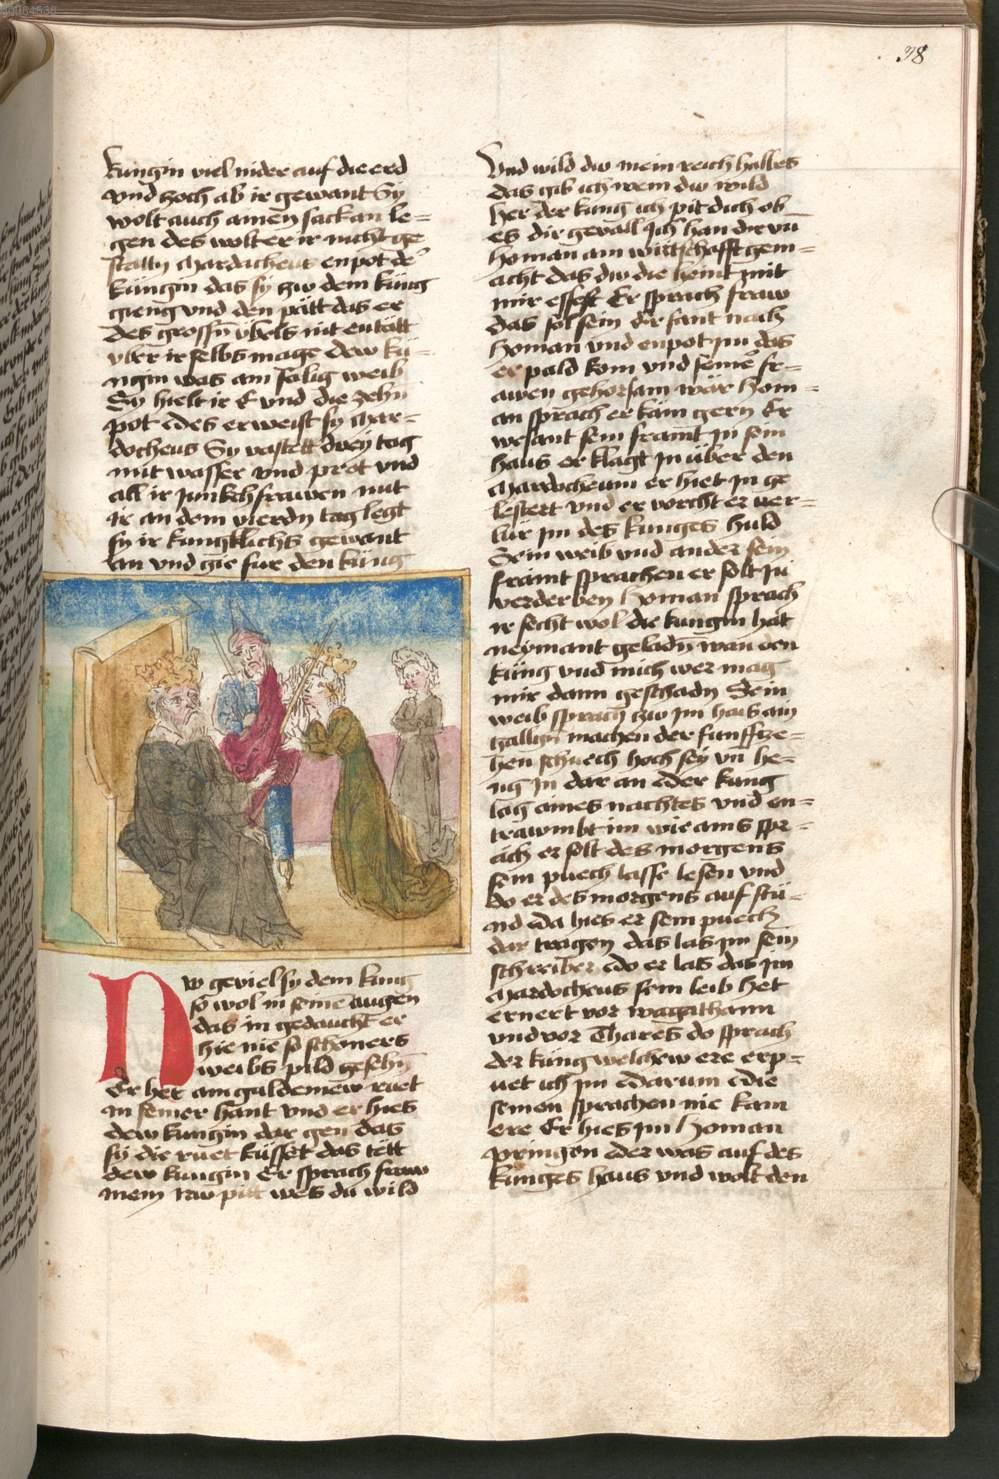 38
kungin viel nider auf die erd
vnd zoch ab ir gewant Sy
wolt auch ainen sack an le=
gen des wolt er ir nicht ge
statten Mardacheus enpot de
küngin das sy zw dem küng
gieng vnd den pätt das er
des grossn übels nit entätt
vber ir selbs mage dew kü=
ngin was ain sälig weib
Sy hielt ir E vnd die zehn
pot des erweist sy Mar=
docheus Sy vastett dreÿ tag
mit wasser vnd prot vnd
all ir junkchfrawen mit
ir an dem vierdn tag legt
sy ir kungklichs gewant
an vnd gie für den küng
Dw geviel sy dem küng
so wol in seine augen
das in gedaucht er
hie nie so schöners
weibs pild gesehn
Er het ain guldeinew ruet
in seiner hant vnd er hies
dew kungin dar gen das
sy die ruet küsset das tett
dew kungin Er sprach fraw
mein nw pitt wes du wild
Vnd wild dw mein reich halbes
das gib ich wem dw wild
her der küng ich pit dich ob
es dir gevall Jch han dir vn
homan ain wirtschafft gem=
acht das dw die heint mit
mir essest Er sprach fraw
das sol sein Er sant nach
homan vnd enpot im das
er pald kom vnd seine fr=
awen gehorsam wär hom=
an sprach er käm gern Er
wesant sein framt in sein
haus er klagt in über den
Mardocheum er hiet in ge
lestert vnd er vorcht er ver=
lür im des kuniges huld
Sein weib vnd ander sein
framt sprachen er solt in
verderben homan sprach
ir secht wol die kungin hat
neymant geladn wan den
küng vnd mich wer mag
mir dann geschadn Sein
weib sprach zw im hais ain
galligen machen der funffze=
hen schuech hoch sey vn he=
ng in dar an der kung
lag aines nachtes vnd en=
trawmbt im wie ains spr=
äch er solt des morgens
sein puech lasse lesen vnd
do er des morgens auf stü=
nd da hies er sein puech
dar tragen das las im sein
schreiber do er las das im
Mardocheus sein leib het
ernert vor wagathann
vnd vor Thares do sprach
der küng welchew ere erp=
uet ich im darum die
seinen sprachen nie kain
ere Er hies im homan
pringen der was auf des
kunges haus vnd wolt den